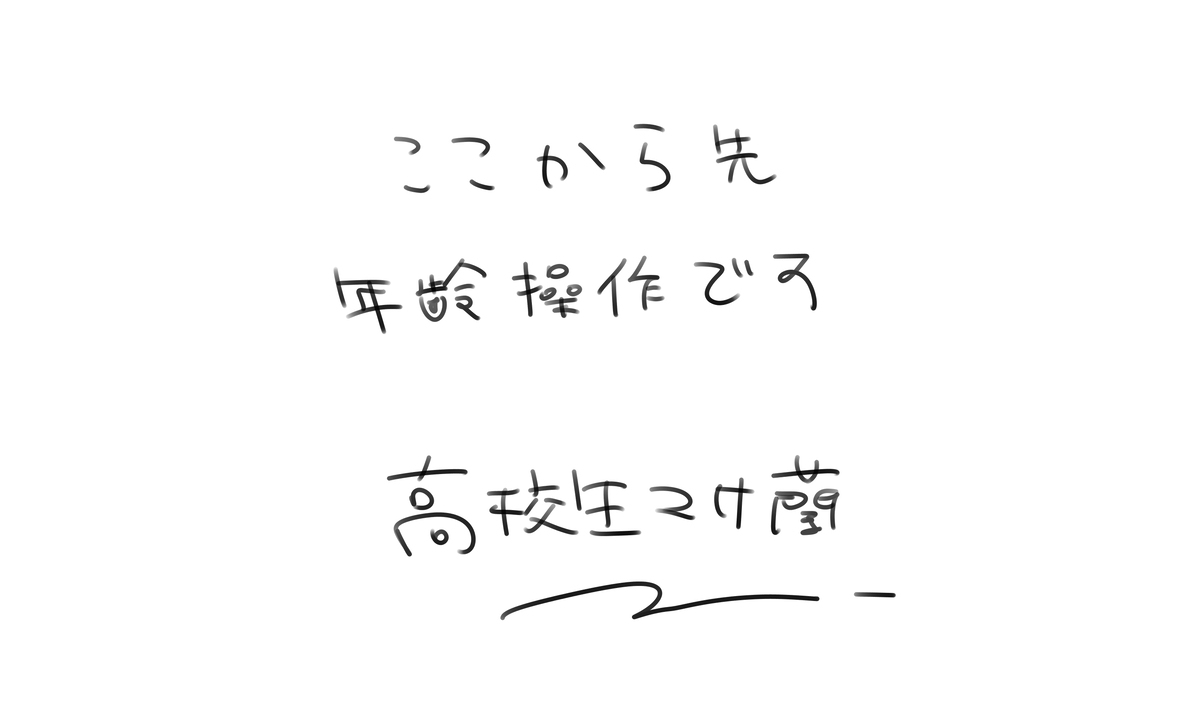 ここから先
年齢操作です
高校生こけ蘭